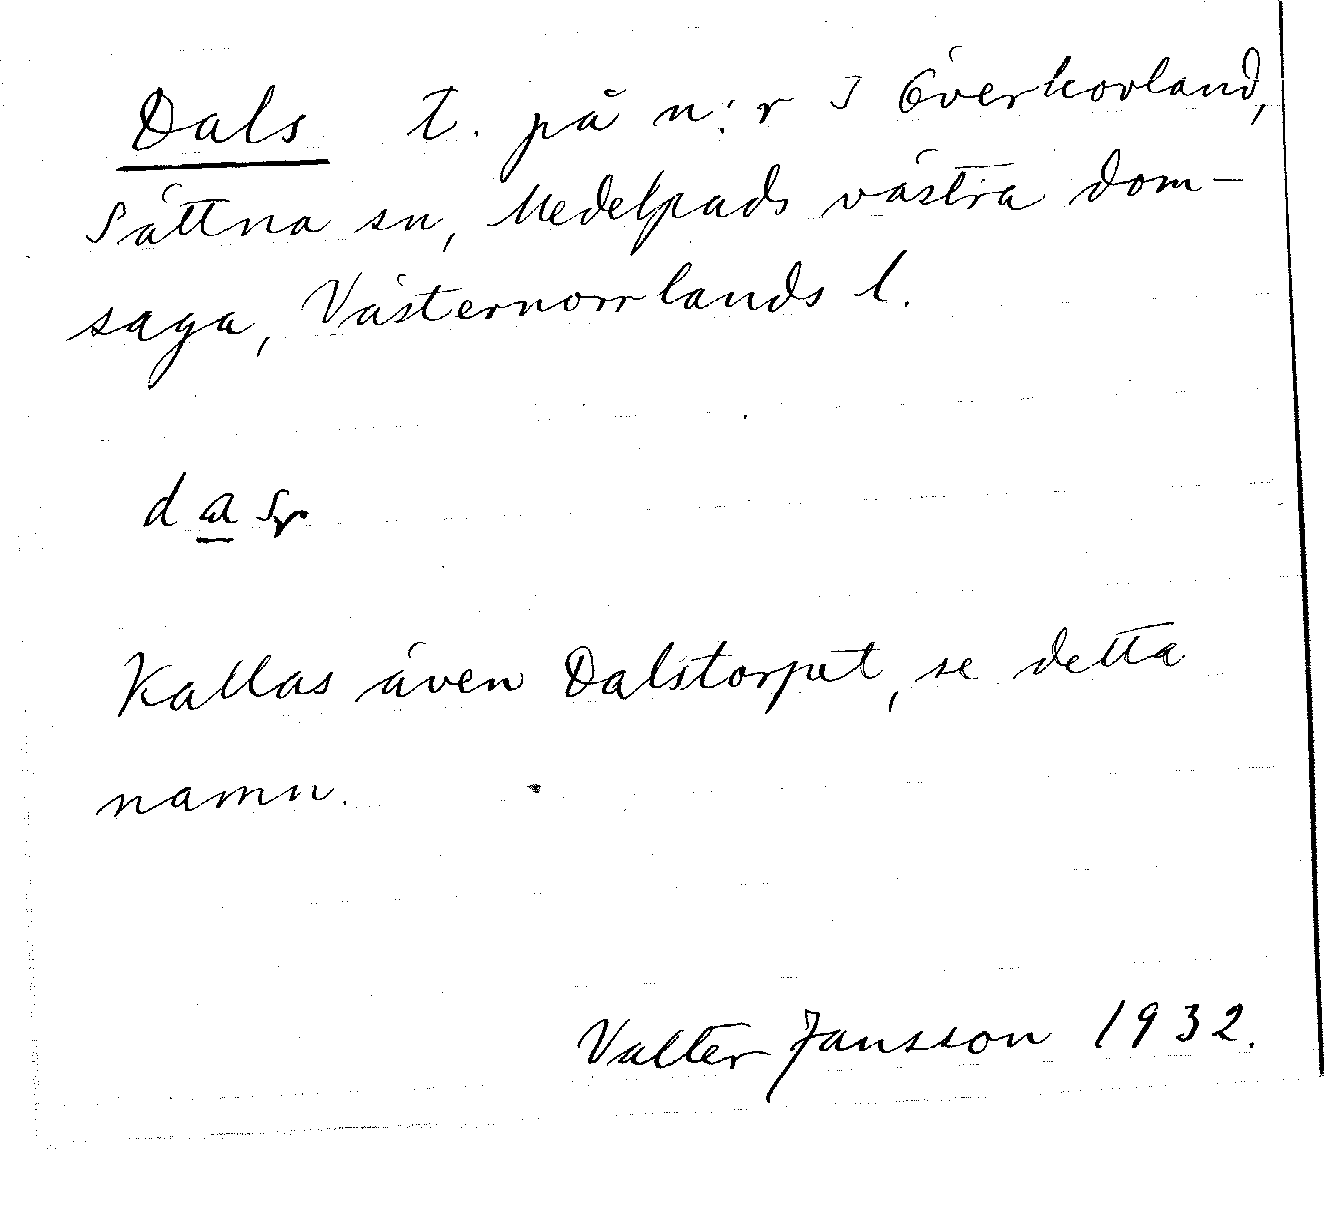 Dals t. på n:r 3 Överkovland,
Sättna sn, Medelpads västra dom-
saga, Västernorrlands l.
Kallas även Dalstorpet, se detta
namn.
Valter Jansson 1932.